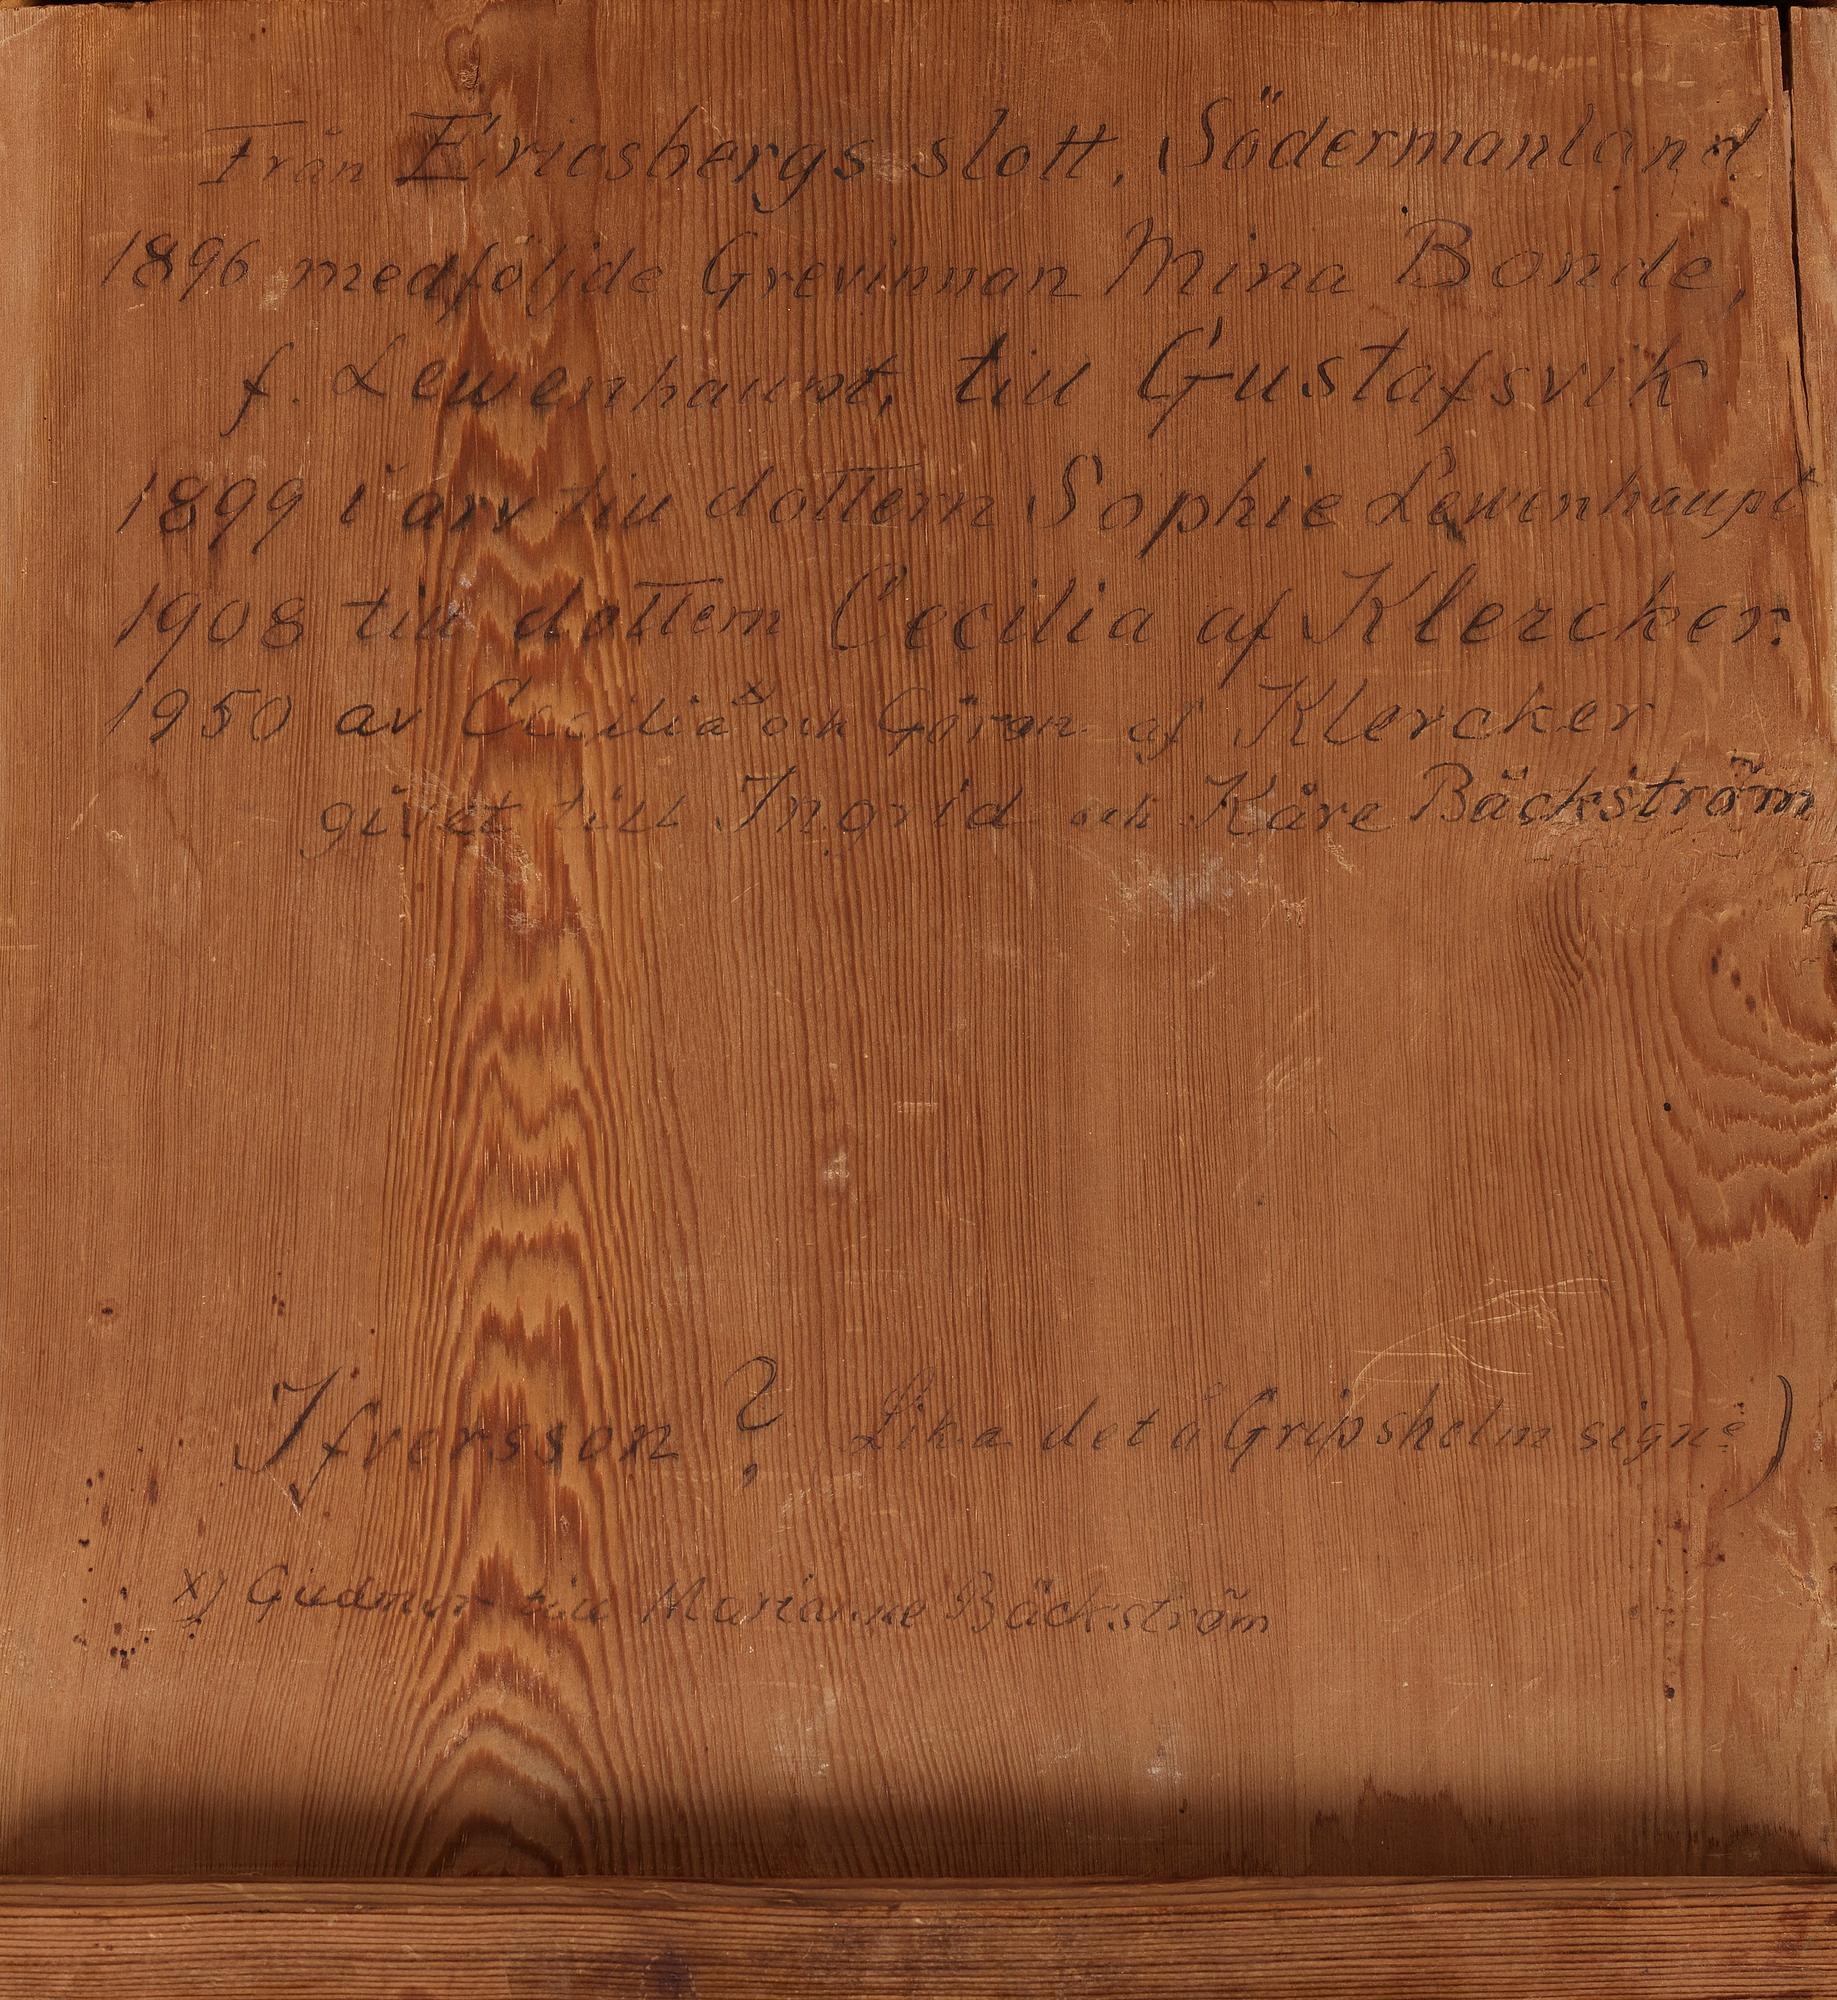 Från Ericsbergs slott, Södermanland
1896 medföljde Grevinnan Mina Bonde,
f. Lewenhaupt, till Gustafsvik
1899 i arv till dottern Sophie Lewenhaupt
1908 till dottern Cecilia af Klercker.
1950 av Cecilia x) och Göran af Klercker
givet till Ingrid och Kåre Bäckström
Ifversson ? Lika det å Gripsholm sign:e)
x) Gudmor till Marianne Bäckström